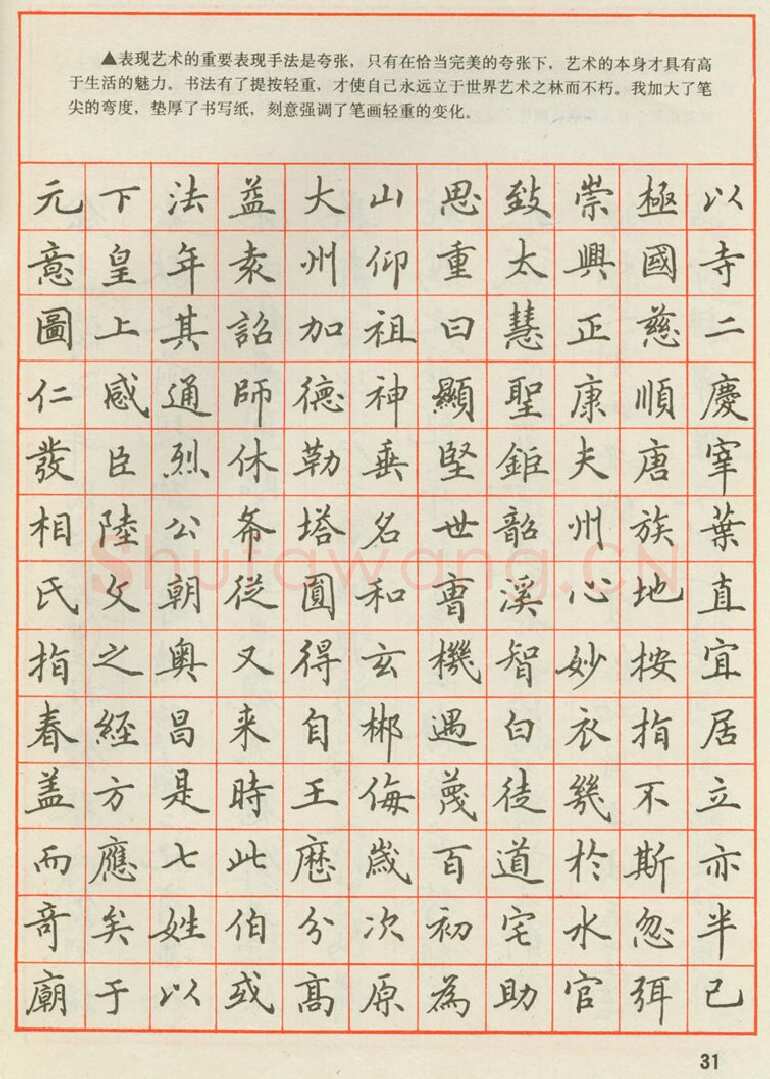 ▲表现艺术的重要表现手法是夸张，只有在恰当完美的夸张下，艺术的本身才具有高
于生活的魅力。书法有了提按轻重，才使自己永远立于世界艺术之林而不朽。我加大了笔
尖的弯度，垫厚了书写纸，刻意强调了笔画轻重的变化。
元下法益大山思致崇極以
意皇年袁州仰重太興國寺
圖上其詔加祖曰慧正慈二
仁感通師德神顯聖康順慶
發臣烈休勒垂堅鉅夫唐宰
相陸公希塔名世韶州族葉
氏文朝從圓和曹溪心地直
指之奥又得玄機智妙按宜
春經昌来自郴遇白衣指居
盖方是時王侮蔑徒幾不立
而應七此歷歲百道於斯亦
奇矣姓伯分次初宅水忽半
廟于以或高原為助官弭已
Shufawang.CN
31